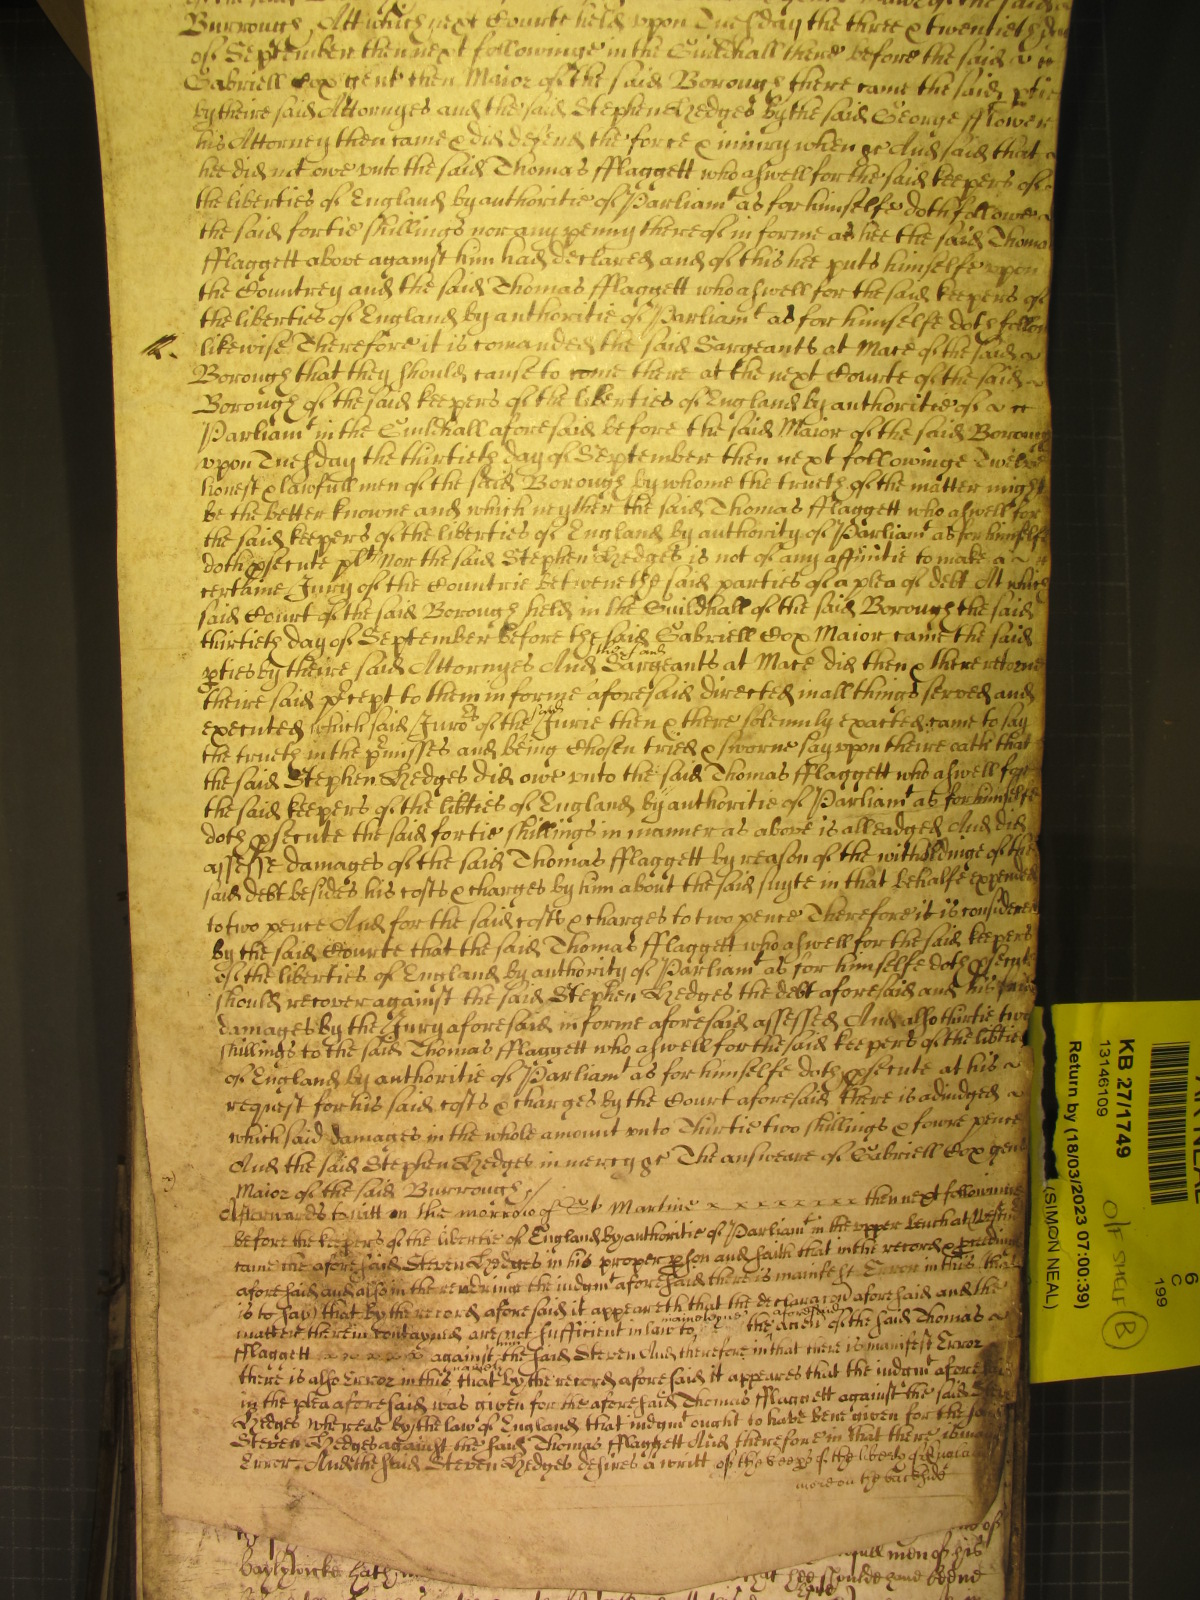 Burrough. Att which next Courte held upon Tuesday the three & twentieth
of September then next followinge in the Guildhall there before the said
Gabriell Cox gent then Maior of the said Borough there came the said ptie
by theire said Attornyes and the said Stephen Hedges by the said George fflower
his Attorney then came & did defend the force & iniury when &c And said that
hee did not owe unto the said Thomas fflaggett who aswell for the said keepers of
the liberties of England by authoritie of Parliamt as for himselfe doth followe
the said fortie shillings nor any penny thereof in forme as hee the said Thomas
fflaggett above against him had declared and of this hee puts himselfe upon
the Countrey and the said Thomas fflaggett who aswell for the said keepers of
the liberties of England by authoritie of Parliamt as for himselfe doth follow
likewise Therefore it is comanded the said Sargeants at Mace of the said
Borough that they should cause to come there at the next Courte of the said
Borough of the said keepers of the liberties of England by authoritie of
Parliamt in the Guildhall aforesaid before the said Maior of the said Borough
upon Tuesday the thirtieth day of September then next followinge Twelve
honest & lawfull men of the said Borough by whome the trueth of the matter might
be the better knowne and which neyther the said Thomas fflaggett who aswell for
the said keepers of the liberties of England by authority of Parliamt as for himselfe
doth psecute plt Nor the said Stephen Hedges is not of any affinitie to make a
certaine Jury of the Countrie betweene the said parties of a plea of debt At which
said Court of the said Borough held in the Guildhall of the said Borough the said
thirtieth day of September before the said Gabriell Cox Maior came the said
pties by theire said Attornyes And the said Sargeants at Mace did then & there retorne
theire said pcept to them in forme aforesaid directed in all things served and
executed which said Juros of the said Jurie then & there solemnly exacted came to say
the trueth in the pmisses and being Chosen tried & sworne say upon theire oath that
the said Stephen Hedges did owe unto the said Thomas fflaggett who aswell for
the said keepers of the libties of England by authoritie of Parliamt as for himselfe
doth psecute the said fortie shillings in manner as above is alleadged And did
assesse damages of the said Thomas fflaggett by reason of the witholdinge of the
said debt besides his costs & charges by him about the said suyte in that behalfe expended
to two pence And for the said costs & charges to two pence Therefore it is considered
by the said Courte that the said Thomas fflaggett who aswell for the said keepers
of the liberties of England by authority of Parliamt as for himselfe doth psecute
should recover against the said Stephen Hedges the debt aforesaid and his said
damages by the Jury aforesaid in forme aforesaid assessed And also thirtie two
shillings to the said Thomas fflaggett who aswell for the said keepers of the libties
of England by authoritie of Parliamt as for himselfe doth psecute at his
request for his said costs & charges by the Court aforesaid there is adiudged
which said damages in the whole amount unto Thirtie two shillings & foure pence
And the said Stephen Hedges in mercy &c The answeare of Gabriell Cox gent
Maior of the said Burrough
Afterwards to witt on the morrow of St Martine x x x x x x x x x then next followinge
before the keepers of the libertie of England by authoritie of Parliamt in the upper bench at Westm
came the aforesaid Steven Hedges in his proper pson and saith that in the record & pceedings
aforesaid and also in the rendring the iudgmt aforesaid there is manifest Error in this that
is to say that by the record aforesaid it appeareth that the declaracon aforesaid and the
matter therein contayned are not sufficient in law to mainetayne the accon aforesaid of the said Thomas
fflaggett against him the said Steven And therefore in that there is manifest Error
there is also Error in this that by the record aforesaid it appeares that the iudgmt aforesaid
in the plea aforesaid was given for the aforesaid Thomas fflaggett against the said Steven
Hedges whereas by the law of England that iudgmt ought to have bene given for the said
Steven Hedges against the said Thomas fflaggett And therefore in that there is
Error. And the said Steven Hedges desires a writt of the keeps of the liberty of England
more on the backside
Baylywicke hath
full men of his
that hee should have beene
KB 27/1749
13146109
Return by (18/03/2023 07:00:39)
(SIMON NEAL)
6
C
199
B